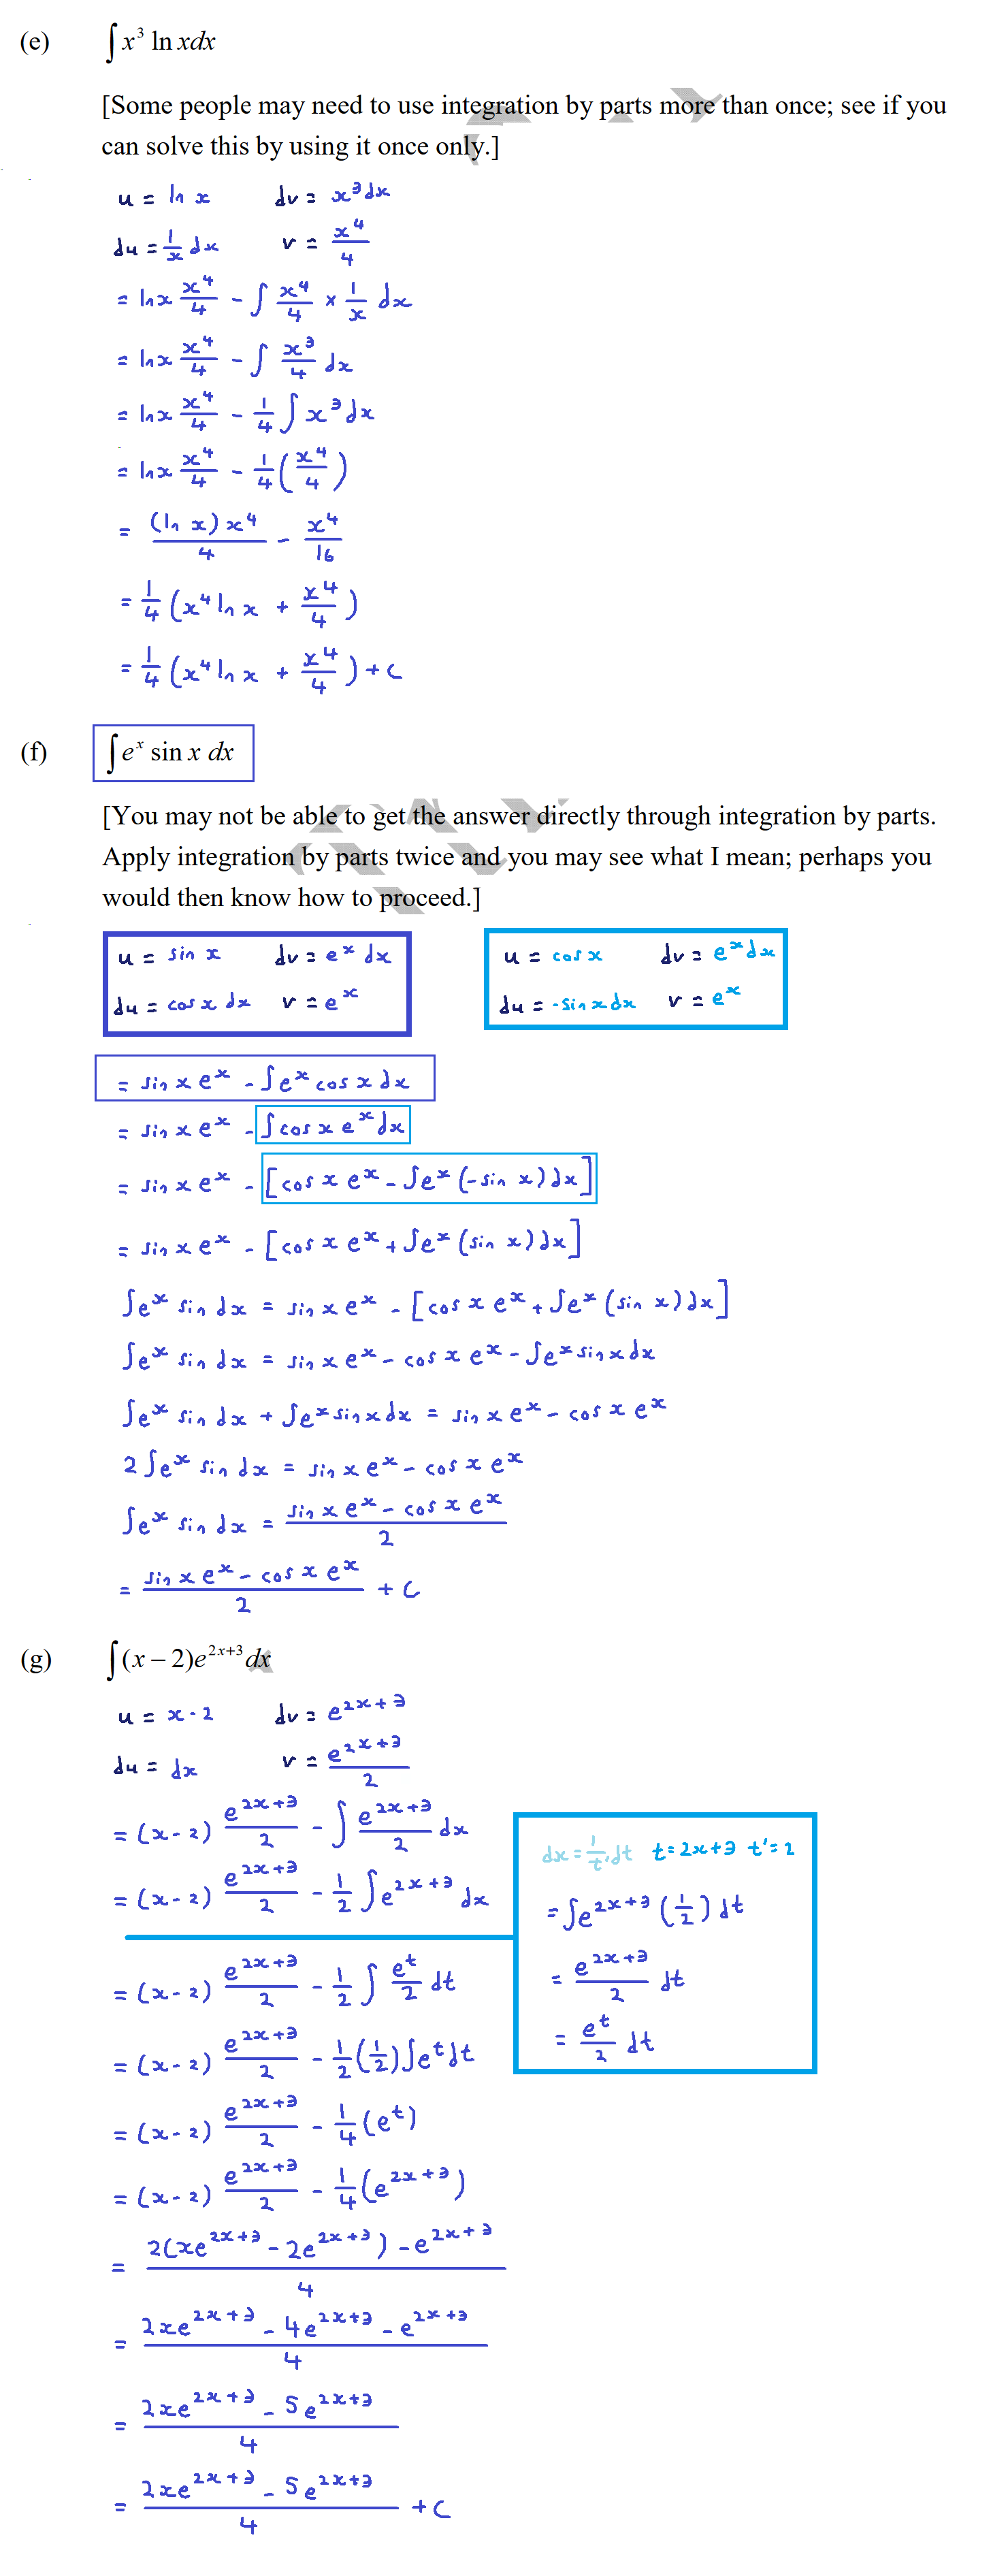 (e) ∫x³ ln xdx
[Some people may need to use integration by parts more than once; see if you
can solve this by using it once only.]
u = ln x dv = x³dx
du = 1/x dx v = x⁴/4
= ln x x⁴/4 - ∫ x⁴/4 × 1/x dx
= ln x x⁴/4 - ∫ x³/4 dx
= ln x x⁴/4 - 1/4 ∫ x³dx
= ln x x⁴/4 - 1/4 (x⁴/4)
= (ln x) x⁴/4 - x⁴/16
= 1/4 (x⁴ ln x + x⁴/4)
= 1/4 (x⁴ ln x + x⁴/4) + c
(f) ∫eˣ sin x dx
[You may not be able to get the answer directly through integration by parts.
Apply integration by parts twice and you may see what I mean; perhaps you
would then know how to proceed.]
u = sin x dv = eˣ dx
du = cos x dx v = eˣ
u = cos x dv = eˣdx
du = -sin x dx v = eˣ
= sin x eˣ - ∫eˣ cos x dx
= sin x eˣ - ∫cos x eˣdx
= sin x eˣ - [cos x eˣ - ∫eˣ (-sin x) dx]
= sin x eˣ - [cos x eˣ + ∫eˣ (sin x) dx]
∫eˣ sin dx = sin x eˣ - [cos x eˣ + ∫eˣ (sin x) dx]
∫eˣ sin dx = sin x eˣ - cos x eˣ - ∫eˣ sin x dx
∫eˣ sin dx + ∫eˣ sin x dx = sin x eˣ - cos x eˣ
2 ∫eˣ sin dx = sin x eˣ - cos x eˣ
∫eˣ sin dx = (sin x eˣ - cos x eˣ)/2
= (sin x eˣ - cos x eˣ)/2 + c
(g) ∫(x – 2)e²ˣ⁺³dx
u = x - 2 dv = e²ˣ⁺³
du = dx v = e²ˣ⁺³/2
= (x - 2) e²ˣ⁺³/2 - ∫ e²ˣ⁺³/2 dx
= (x - 2) e²ˣ⁺³/2 - 1/2 ∫e²ˣ⁺³ dx
dx = 1/t' dt t = 2x+3 t' = 2
= ∫e²ˣ⁺³ (1/2) dt
= e²ˣ⁺³/2 dt
= eᵗ/2 dt
= (x - 2) e²ˣ⁺³/2 - 1/2 ∫ eᵗ/2 dt
= (x - 2) e²ˣ⁺³/2 - 1/2 (1/2) ∫eᵗdt
= (x - 2) e²ˣ⁺³/2 - 1/4 (eᵗ)
= (x - 2) e²ˣ⁺³/2 - 1/4 (e²ˣ⁺³)
= (2(xe²ˣ⁺³ - 2e²ˣ⁺³) - e²ˣ⁺³)/4
= (2xe²ˣ⁺³ - 4e²ˣ⁺³ - e²ˣ⁺³)/4
= (2xe²ˣ⁺³ - 5e²ˣ⁺³)/4
= (2xe²ˣ⁺³ - 5e²ˣ⁺³)/4 + c